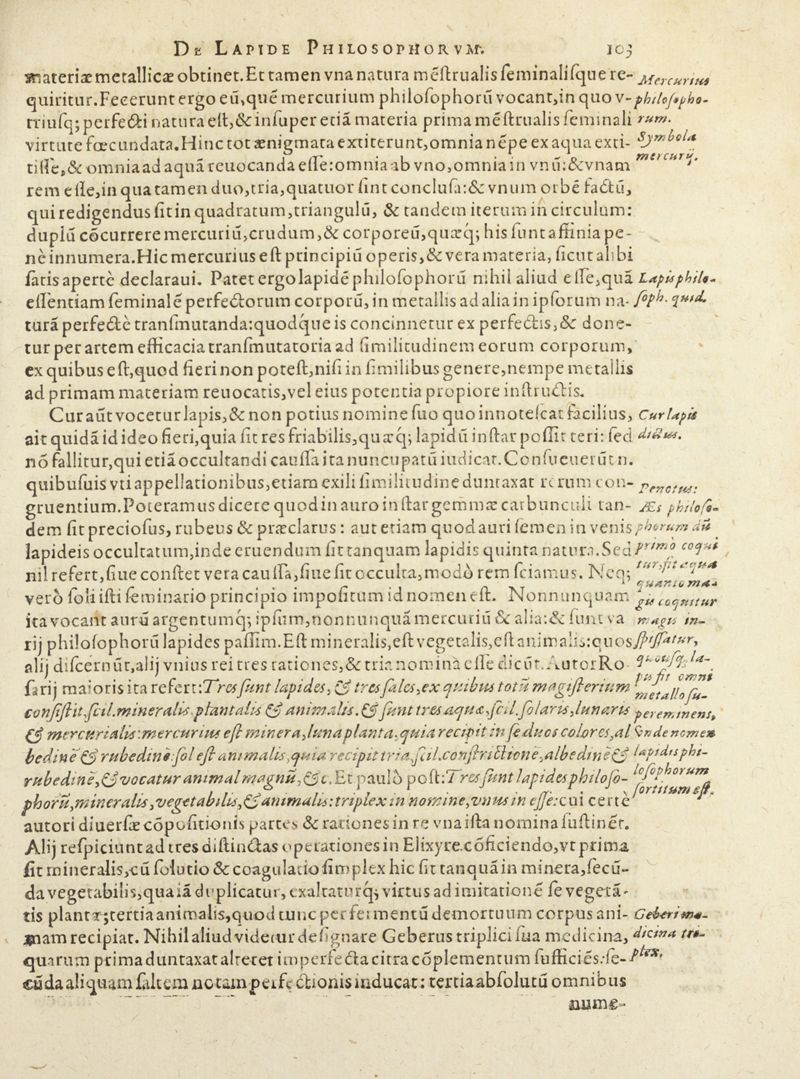 DE LAPIDE PHILOSOPHORVM. 103
materiæ metallicæ obtinet. Et tamen vna natura mẽstrualis seminalisque re-
quiritur. Fecerunt ergo eũ, quẽ mercurium philosophorũ vocant, in quo v-
triusq; perfecti natura est, & insuper etiã materia prima mẽstrualis seminali
virtute fœcundata. Hinc tot ænigmata extiterunt, omnia nẽpe ex aqua exti-
tisse, & omnia ad aquã reuocanda esse: omnia ab vno, omnia in vnũ: & vnam
rem esse, in qua tamen duo, tria, quatuor sint conclusa: & vnum orbẽ factũ,
qui redigendus sit in quadratum, triangulũ, & tandem iterum in circulum:
duplũ cõcurrere mercuriũ, crudum, & corporeũ, quæq; his sunt affinia pe-
nè innumera. Hic mercurius est principiũ operis, & vera materia, sicut alibi
satis apertè declaraui. Patet ergo lapidẽ philosophorũ nihil aliud esse, quã
essentiam seminalẽ perfectorum corporũ, in metallis ad alia in ipsorum na-
turã perfectè transmutanda: quodque is concinnetur ex perfectis, & done-
tur per artem efficacia transmutatoria ad similitudinem eorum corporum,
ex quibus est, quod fieri non potest, nisi in similibus genere, nempe metallis
ad primam materiam reuocatis, vel eius potentia propiore instructis.
Cur aũt vocetur lapis, & non potius nomine suo quo innotescat facilius,
ait quidã id ideo fieri, quia sit res friabilis, quæq; lapidũ instar possit teri: sed
nõ fallitur, qui etiã occultandi caussa ita nuncupatũ iudicat. Consueuerũt n.
quibusuis vti appellationibus, etiam exili similitudine duntaxat rerum con-
gruentium. Poteramus dicere quod in auro instar gemmæ carbunculi tan-
dem sit preciosus, rubeus & præclarus: aut etiam quod auri semen in venis
lapideis occultatum, inde eruendum sit tanquam lapidis quinta natura. Sed
nil refert, siue constet vera caussa, siue sit occulta, modò rem sciamus. Neq;
verò soli isti seminario principio impositum id nomen est. Nonnunquam
ita vocant aurũ argentumq; ipsum, nonnunquã mercuriũ & alia: & sunt va
rij philosophorũ lapides passim. Est mineralis, est vegetalis, est animalis: quos
alij discernũt, alij vnius rei tres rationes, & tria nomina esse dicũt. Autor Ro
sarij maioris ita refert: Tres sunt lapides, & tres sales, ex quibus totũ magisterium
consistit, scil. mineralis, plantalis & animalis. & sunt tres aquæ, scil. solaris, lunaris
& mercurialis: mercurius est minera, luna planta, quia recipit in se duos colores, al
bedinẽ & rubedinẽ: sol est animalis, quia recipit tria, scil. constrictionẽ, albedinẽ &
rubedinẽ, & vocatur animal magnũ, &c. Et paulò post: Tres sunt lapides philoso-
phorũ, mineralis, vegetabilis, & animalis: triplex in nomine, vnus in esse: cui certè
autori diuersæ cõpositionis partes & rationes in re vna ista nomina sustinẽt.
Alij respiciunt ad tres distinctas operationes in Elixyre cõficiendo, vt prima
sit mineralis, cũ solutio & coagulatio simplex hic sit tanquã in minera, secũ-
da vegetabilis, quia iã duplicatur, exaltaturq; virtus ad imitationẽ se vegetã-
tis plantæ; tertia animalis, quod tunc per fermentũ demortuum corpus ani-
mam recipiat. Nihil aliud videtur designare Geberus triplici sua medicina,
quarum prima duntaxat alteret imperfecta citra cõplementum sufficiẽs: se-
cũda aliquam saltem notam perfectionis inducat: tertia absolutũ omnibus
nume-
Mercurius
philosopho-
rum.
Symbola
mercurij.
Lapis philo-
soph. quid.
Cur lapis
dictus.
Penotus:
Æs philoso-
phorum dũ
primo coqui
tur, fit aqua
quanto ma-
gis coquitur
magis in-
spissatur,
quousq; la-
pis fit omni
metallo su-
pereminens,
vnde nomen
lapidis phi-
losophorum
sortitum est.
Geberi me-
dicina tri-
plex.